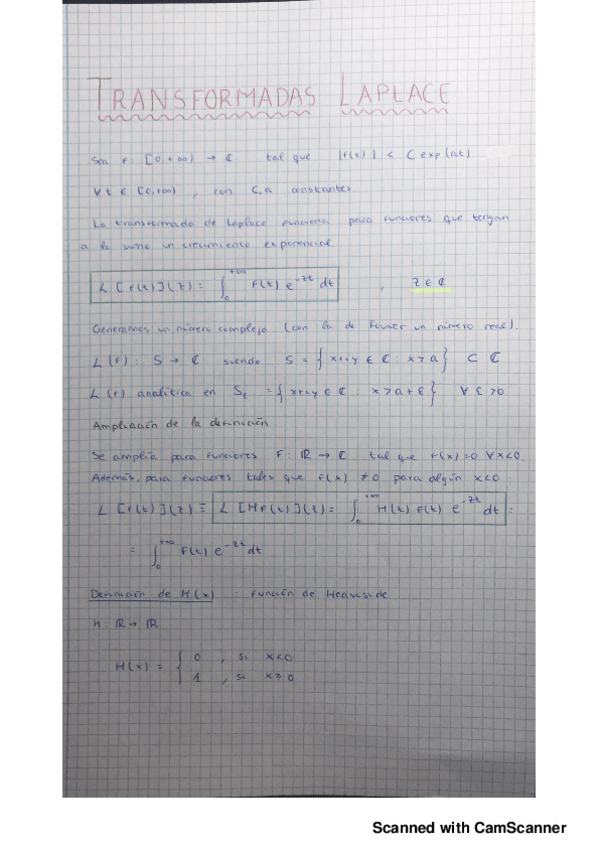 TRANSFORMADAS LAPLACE
Sea f: [0,+∞) → ℂ tal que |f(t)| < C exp(at)
∀ t ∈ [0,+∞) , con C,a constantes.
La transformada de Laplace funciona para funciones que tengan
a lo sumo un crecimiento exponencial.
L [f(t)](z) = ∫₀^{+∞} f(t) e^{-zt} dt , z ∈ ℂ
Generamos un número complejo (con la de Fourier un número real).
L(f): S → ℂ siendo S = { x+iy ∈ ℂ : x > a } ⊂ ℂ
L(f) analítica en S_ε = { x+iy ∈ ℂ : x > a+ε } ∀ ε > 0
Ampliación de la definición
Se amplía para funciones f: ℝ → ℂ tal que f(x)=0 ∀x<0.
Además, para funciones tales que f(x) ≠ 0 para algún x<0:
L [f(t)](z) ≡ L [Hf(t)](z) = ∫₀^{+∞} H(t) f(t) e^{-zt} dt =
= ∫₀^{+∞} f(t) e^{-zt} dt
Definición de H(x) : Función de Heaviside
H: ℝ → ℝ
H(x) = { 0 , si x<0
1 , si x≥0
Scanned with CamScanner